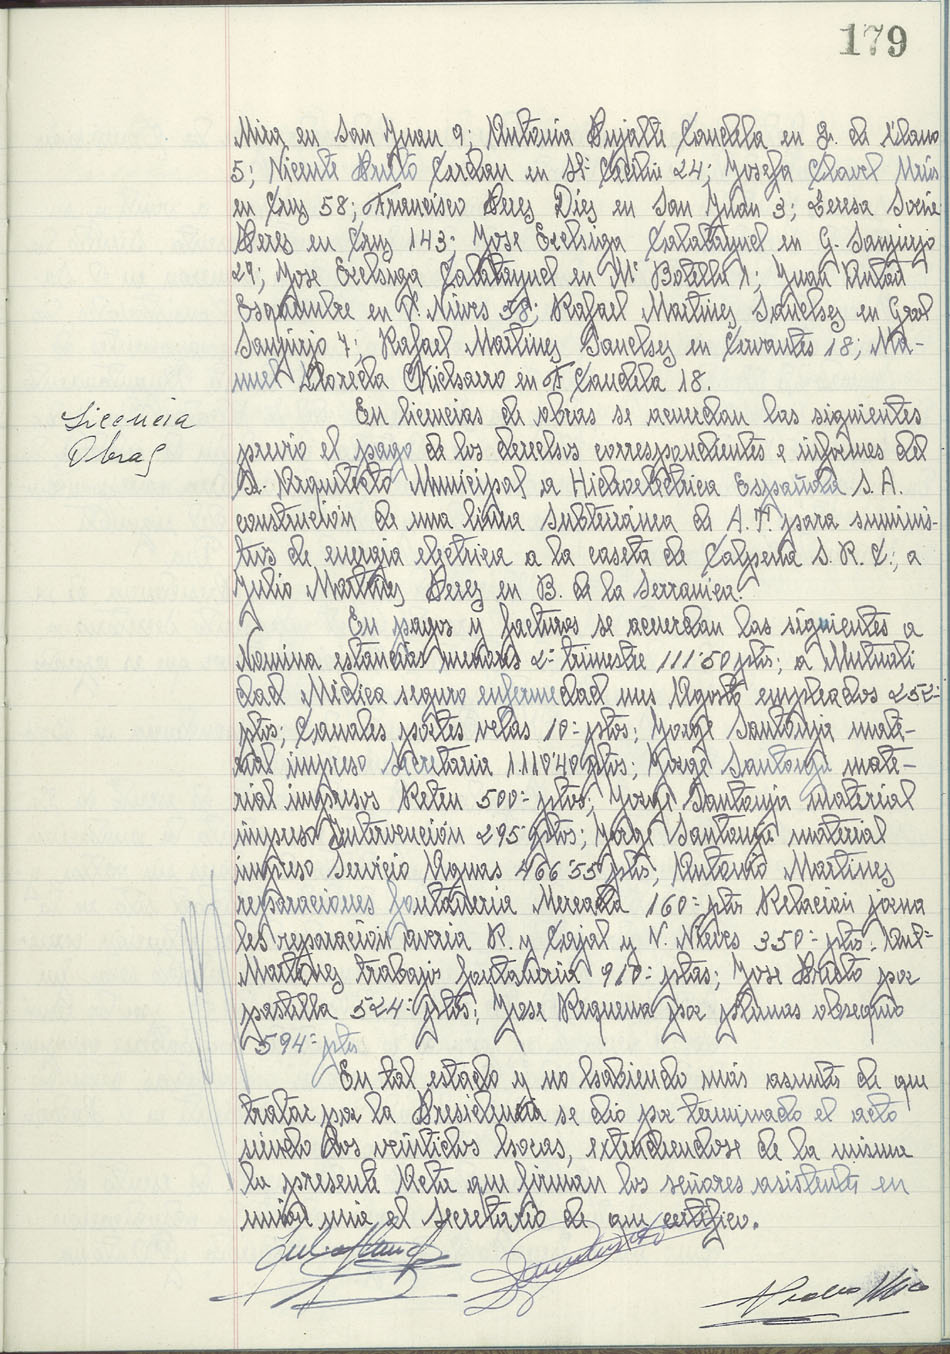 179
Mira en San Juan 9; Antonia Brijalte Candela en G. de Llano
5; Vicente Brito Cerdan en Stª Cecilia 24; Josefa Clavel
en Cruz 58; Francisco Perez Diez en San Juan 3; Teresa
Perez en Cruz 143; Jose Calatayud en G. Sanjurjo
27; Jose Calatayud en Mª Botella 1; Juan Anton
en V. Nieves 38; Rafael Martinez Sanchez en Gral
Sanjurjo 7; Rafael Martinez Sanchez en Cervantes 18; Ma-
nuel en F Candela 18.
Licencia
Obras
En licencias de obras se acuerdan las siguientes
previo el pago de los derechos correspondientes e informes del
S. Arquitecto Municipal a Hidroeléctrica Española S.A.
construcción de una linea subterránea de A.T. para suminis-
tros de energia electrica a la caseta de Calpena S.R.C.; a
Julio Martinez Perez en B. de la Serranica.
En pagos y facturas se acuerdan las siguientes a
Nomina estancias menores 2º trimestre 111'50 ptas; a Mutuali
dad Médica seguro enfermedad mes Agosto empleados 252-
ptas; Canales portes velas 10- ptas; Jorge Santonja mate-
rial impreso Secretaria 1.110'40 ptas; Jorge Santonja mate-
rial impresos Reten 500- ptas; Jorge Santonja material
impreso Intervención 295 ptas; Jorge Santonja material
impreso Servicio Aguas 466'55 ptas; Antonio Martinez
reparaciones fontaneria Mercado 160- ptas Relación jorna
les reparación avería R. y Cajal y V. Nieves 350- ptas. Antº
Martinez trabajos fontaneria 910- ptas; Jose Brito por
pastilla 524- ptas; Jose Requena por plumas obsequio
594- ptas
En tal estado y no habiendo más asunto de que
tratar por la Presidencia se dio por terminado el acto
siendo las veintidos horas, extendiendose de la misma
la presente Acta que firman los señores asistentes en
unión mia el Secretario de que certifico.
Pedro Mira